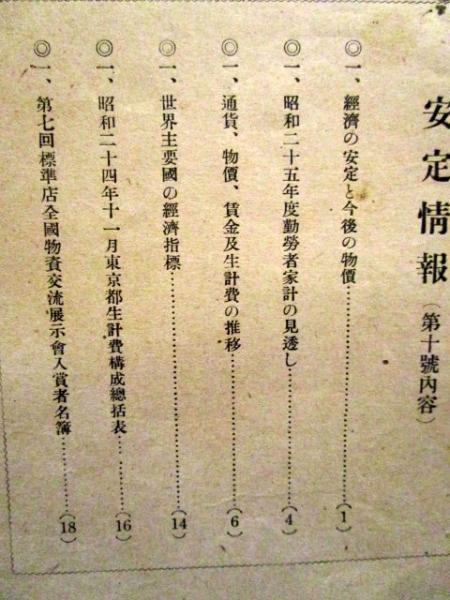 安定情報（第十號內容）
◎一、經濟の安定と今後の物價…………（1）
◎一、昭和二十五年度勤勞者家計の見透し…………（4）
◎一、通貨、物價、賃金及生計費の推移…………（6）
◎一、世界主要國の經濟指標…………（14）
◎一、昭和二十四年十一月東京都生計費構成總括表…………（16）
◎一、第七回標準店全國物資交流展示會入賞者名簿…………（18）